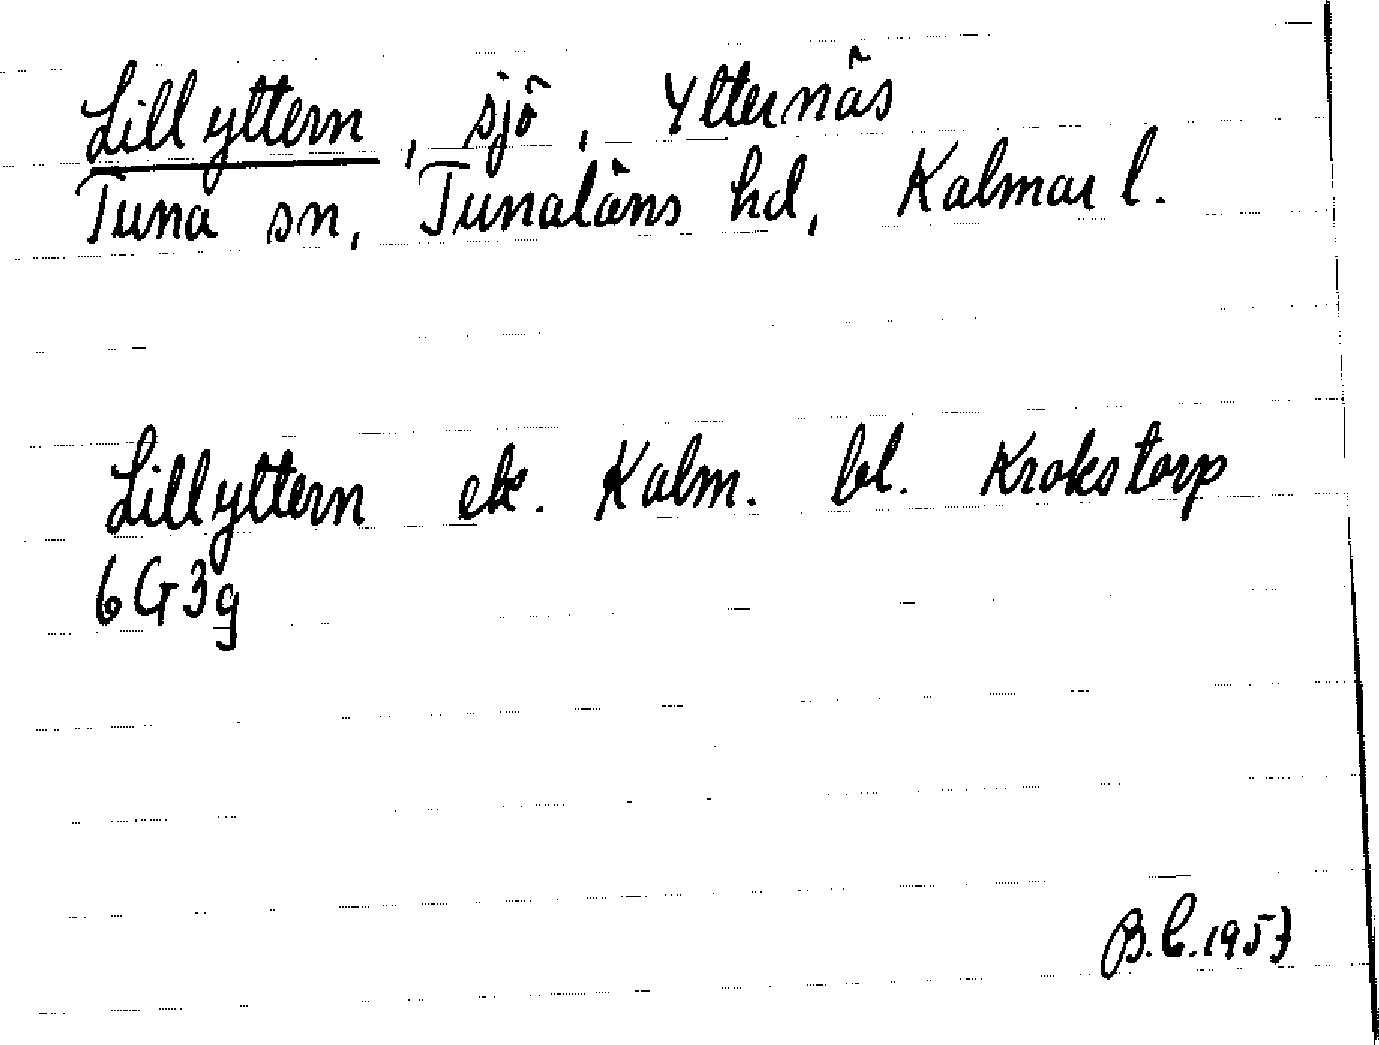 Lillyttern, sjö, Ytternäs
Tuna sn, Tunaläns hd, Kalmar l.
Lillyttern ek. Kalm. bl. Krokstorp
6G3g
B.C. 1957